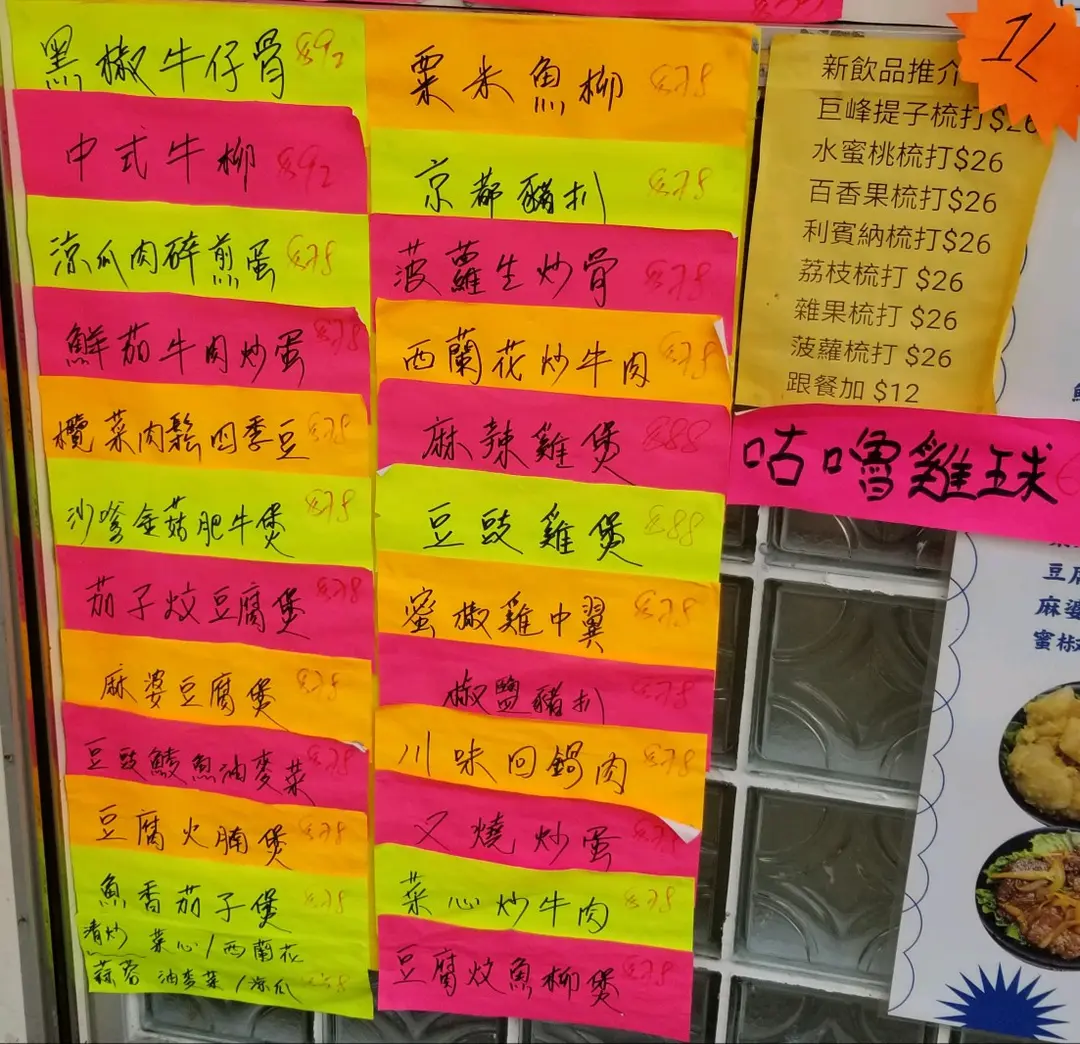 黑椒牛仔骨 $92
中式牛柳 $92
涼瓜肉碎煎蛋 $78
鮮茄牛肉炒蛋 $78
欖菜肉鬆四季豆 $78
沙嗲金菇肥牛煲 $78
茄子炆豆腐煲 $78
麻婆豆腐煲 $78
豆豉鯪魚油麥菜 $78
豆腐火腩煲 $78
魚香茄子煲 $78
清炒 菜心/西蘭花
蒜蓉 油麥菜/涼瓜
粟米魚柳 $78
京都豬扒 $78
菠蘿生炒骨 $78
西蘭花炒牛肉 $78
麻辣雞煲 $88
豆豉雞煲 $88
蜜椒雞中翼 $78
椒鹽豬扒 $78
川味回鍋肉 $78
叉燒炒蛋 $78
菜心炒牛肉 $78
豆腐炆魚柳煲 $78
新飲品推介
巨峰提子梳打$26
水蜜桃梳打$26
百香果梳打$26
利賓納梳打$26
荔枝梳打 $26
雜果梳打 $26
菠蘿梳打 $26
跟餐加 $12
咕嚕雞球
豆腐
麻婆
蜜椒